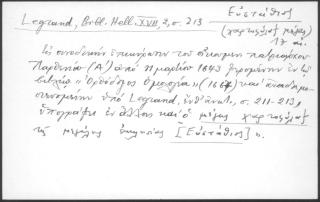 Legrand, Bibl. Hell. XVII, 2, σ. 213
Εὐστάθιος
(χαρτοφύλαξ μέγας)
17 αἰ.
Ἐς συνοδικὴν ἐπικύρωσιν τοῦ οἰκουμεν. πατριάρχου
Παρθενίου (Α΄) ἀπὸ 11 μαρτίου 1643 φερομένην ἐν τῷ
βιβλίῳ «Ὀρθόδοξος Ὁμολογία» (1667) καὶ ἀναδημο-
σιευομένην ὑπὸ Legrand, ἔνθ' ἀνωτ., σ. 211-213,
ὑπογράφει ἐν ἄλλοις καὶ ὁ μέγας χαρτοφύλαξ
τῆς μεγάλης ἐκκλησίας [Εὐστάθιος] ».